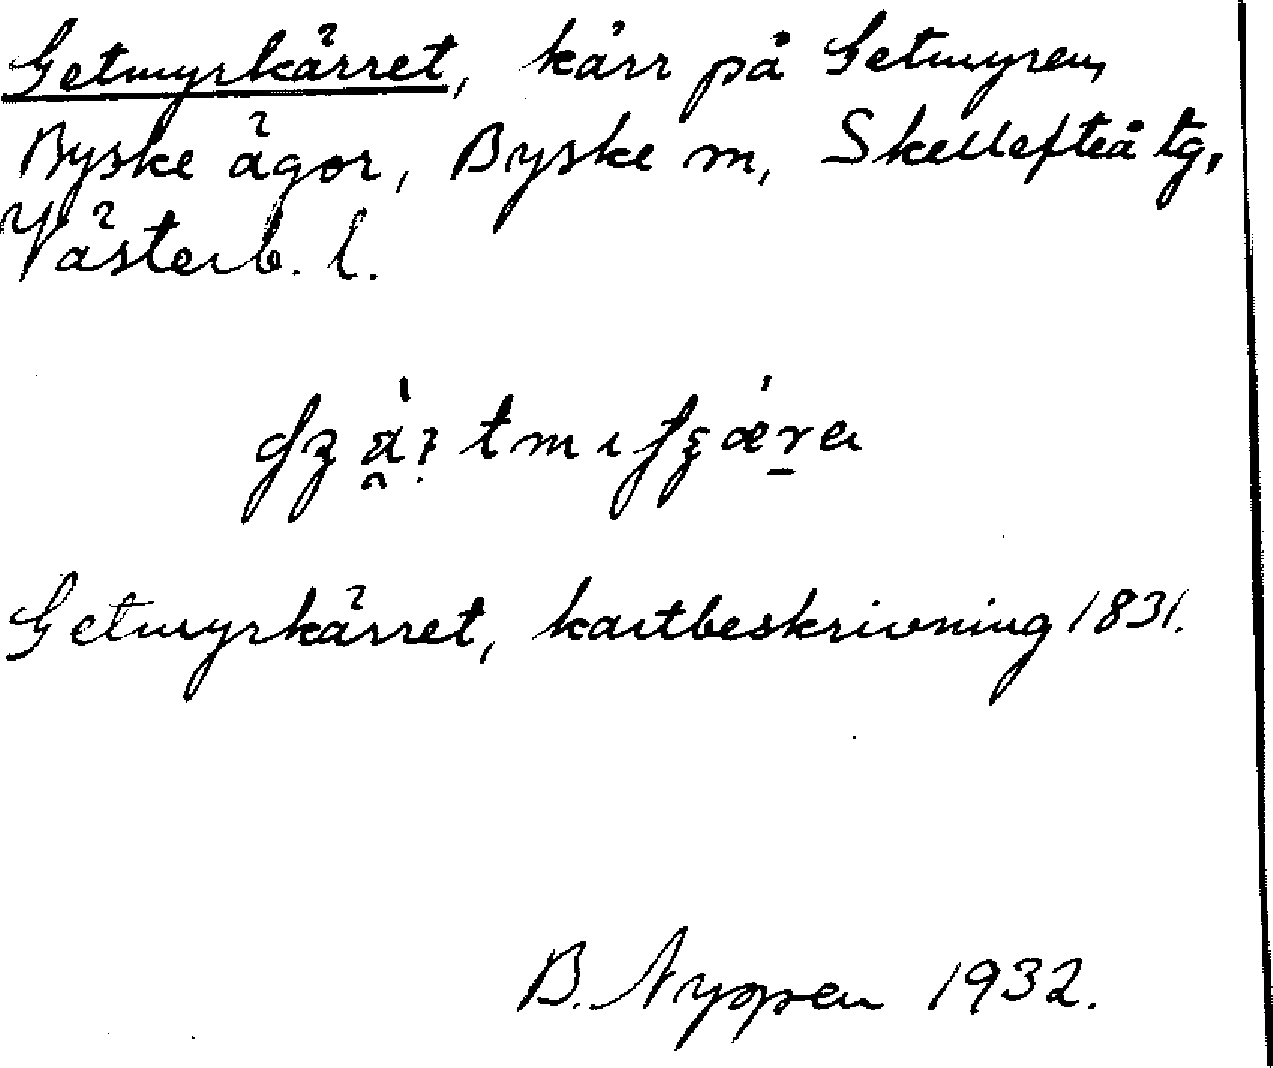 Getmyrkärret, kärr på Getmyren,
Byske ägor, Byske sn, Skellefteå tg,
Västerb. l.
Getmyrkärret, kartbeskrivning 1831.
B. 1932.